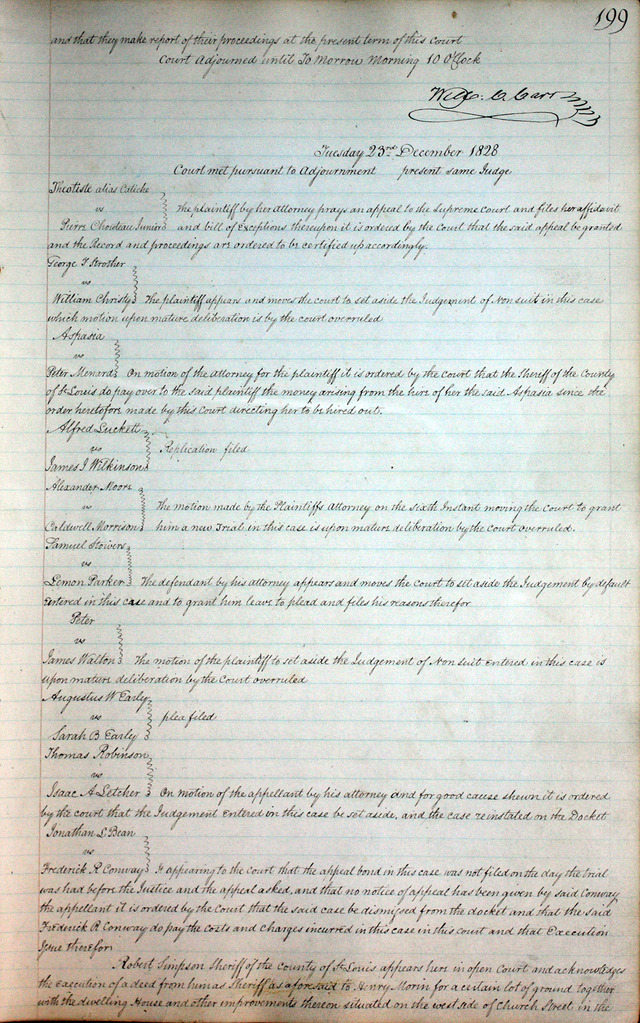 199
and that they make report of their proceedings at the present term of this Court
Court Adjourned until To Morrow Morning 10 O'Clock
Wm C. Carr
Tuesday 23rd December 1828
Court met pursuant to Adjournment present same Judge
Theotiste alias Catiche
vs
The plaintiff by her Attorney prays an appeal to the Supreme Court and files her affidavit
Pierre Choteau Junior and bill of Exceptions thereupon it is ordered by the Court that the said appeal be granted
and the Record and proceedings are ordered to be certified up accordingly.
George F Strother
vs
William Christy The plaintiff appears and moves the court to set aside the Judgement of Non suit in this case
which motion upon mature deliberation is by the court overruled
Aspasia
vs
Peter Menard On motion of the Attorney for the plaintiff it is ordered by the Court that the Sheriff of the County
of St Louis do pay over to the said plaintiff the money arising from the hire of her the said Aspasia since the
order heretofore made by this Court directing her to be hired out.
Alfred Luckett
vs Replication filed
James I Wilkinson
Alexander Moore
vs The motion made by the Plaintiffs Attorney on the sixth Instant moving the Court to grant
Caldwell Morrison him a new Trial in this case is upon mature deliberation by the Court overruled.
Samuel Stowers
vs
Lemon Parker The defendant by his attorney appears and moves the Court to set aside the Judgement by default
entered in this case and to grant him leave to plead and files his reasons therefor
Peter
vs
James Walton The motion of the plaintiff to set aside the Judgement of Non suit entered in this case is
upon mature deliberation by the Court overruled
Augustus W Early
vs plea filed
Sarah B Early
Thomas Robinson
vs
Isaac A Letcher On motion of the appellant by his attorney and for good cause shewn it is ordered
by the court that the Judgement entered in this case be set aside, and the case reinstated on the Docket
Jonathan L Bean
vs
Frederick R Conway It appearing to the court that the appeal bond in this case was not filed on the day the trial
was had before the Justice and the appeal asked, and that no notice of appeal has been given by said Conway
the appellant it is ordered by the Court that the said case be dismissed from the docket and that the said
Frederick R Conway do pay the costs and charges incurred in this case in this court and that Execution
Issue therefor
Robert Simpson Sheriff of the county of St Louis appears here in open Court and acknowledges
the execution of a deed from him as Sheriff as aforesaid to Henry Morin for a certain lot of ground together
with the dwelling House and other improvements thereon situated on the west side of Church Street in the